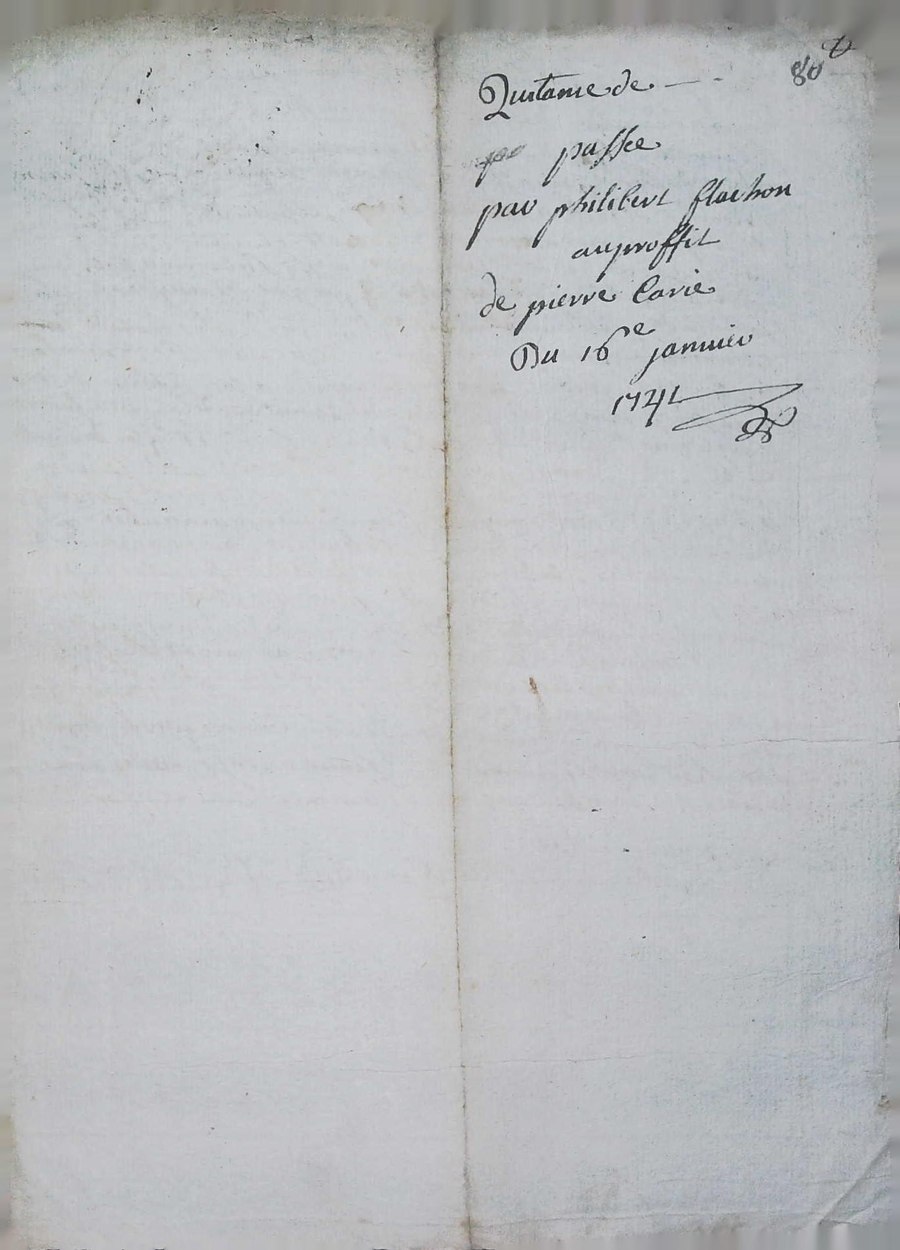 80
Quitance de
passée
par philibert flachon
auproffit
de pierre Carie
Du 16e janvier
1741